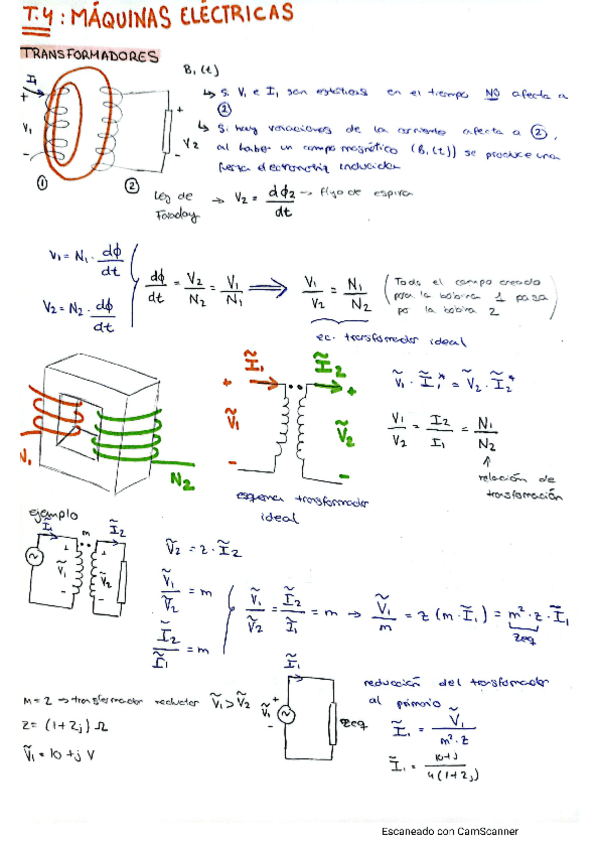 T.4: MÁQUINAS ELÉCTRICAS
TRANSFORMADORES
B₁(t)
I₁
+
V₁
-
①
②
+
V2
-
↳ Si V₁ e I₁ son estáticas en el tiempo NO afecta a
②
↳ Si hay variaciones de la corriente afecta a ②,
al haber un campo magnético (B₁(t)) se produce una
fuerza electromotriz inducida
Ley de
Faraday
→ V2 = dϕ2/dt → flujo de espira
V₁ = N₁ · dϕ/dt
V2 = N2 · dϕ/dt
dϕ/dt = V2/N2 = V₁/N₁ ⟹ V₁/V2 = N₁/N2
(Todo el campo creado
por la bobina 1 pasa
por la bobina 2)
ec. transformador ideal
N₁
N2
Ĩ₁
Ĩ2
+
Ṽ₁
-
+
Ṽ2
-
esquema transformador
ideal
Ṽ₁ · Ĩ₁* = Ṽ2 · Ĩ2*
V₁/V2 = I2/I₁ = N₁/N2
↑
relación de
transformación
ejemplo
Ĩ₁
m
Ĩ2
+
Ṽ₁
-
+
Ṽ2
-
Ṽ2 = z · Ĩ2
Ṽ₁/Ṽ2 = m
Ĩ2/Ĩ₁ = m
Ṽ₁/Ṽ2 = Ĩ2/Ĩ₁ = m → Ṽ₁/m = z (m · Ĩ₁) = m² · z · Ĩ₁
zeq
m = 2 → transformador reductor Ṽ₁ > Ṽ2
z = (1+2j) Ω
Ṽ₁ = 10 + j V
Ĩ₁
+
Ṽ₁
-
zeq
reducción del transformador
al primario
Ĩ₁ = Ṽ₁/(m² · z)
Ĩ₁ = (10+j)/(4(1+2j))
Escaneado con CamScanner